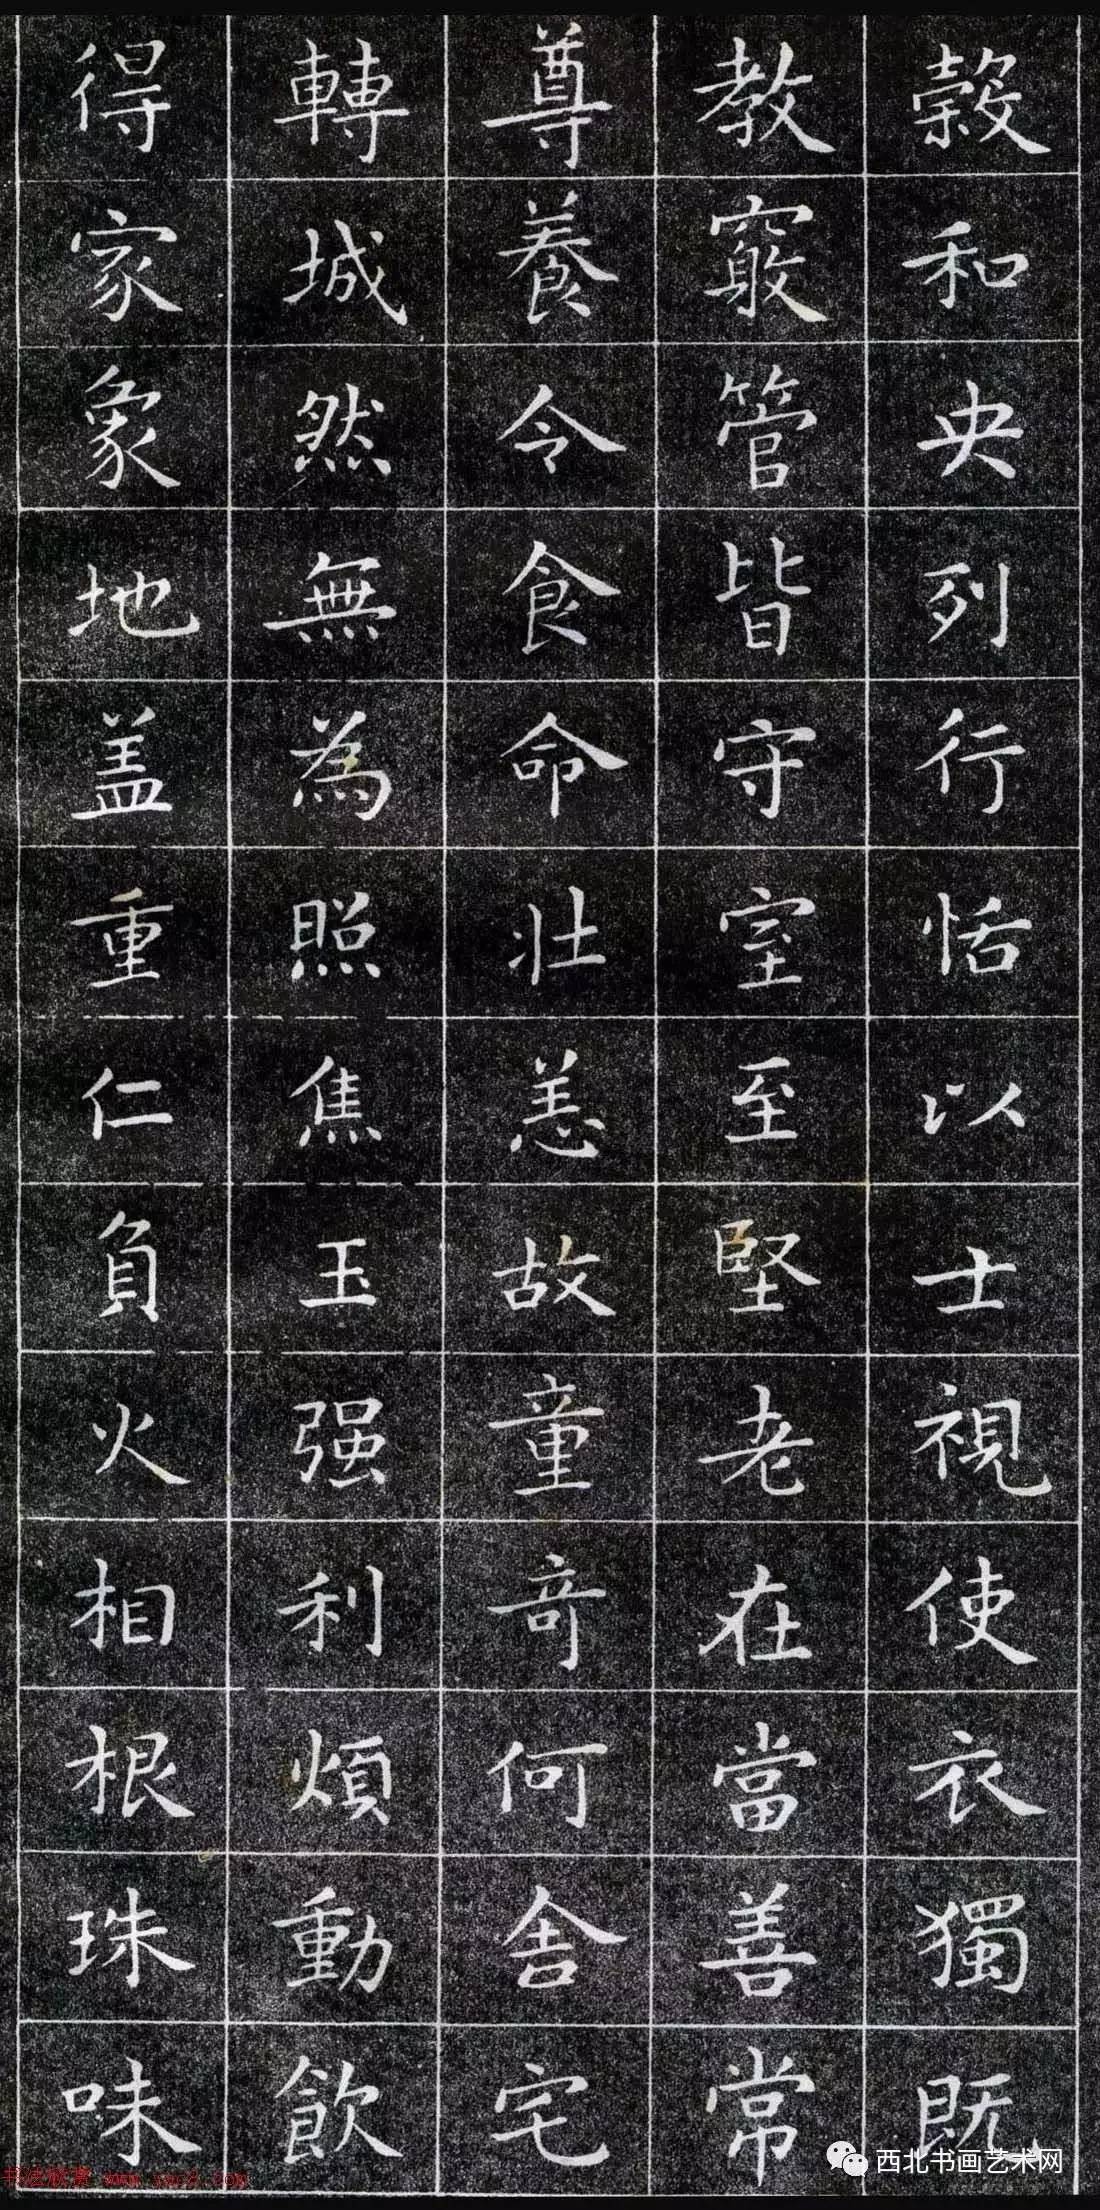 榖和央列行恬以士視使衣獨既
教窮管皆守室至堅老在當善常
尊養令食命壯恙故童奇何舍宅
轉城然無為照焦玉强利煩動飲
得家象地盖重仁負火相根珠味
西北书画艺术网